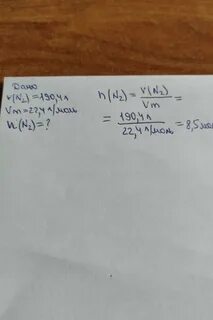 Дано
V(N₂)=190,4л
Vm=22,4л/моль
n(N₂)=?
n(N₂)=V(N₂)/Vm=
=190,4л/22,4л/моль=8,5мол